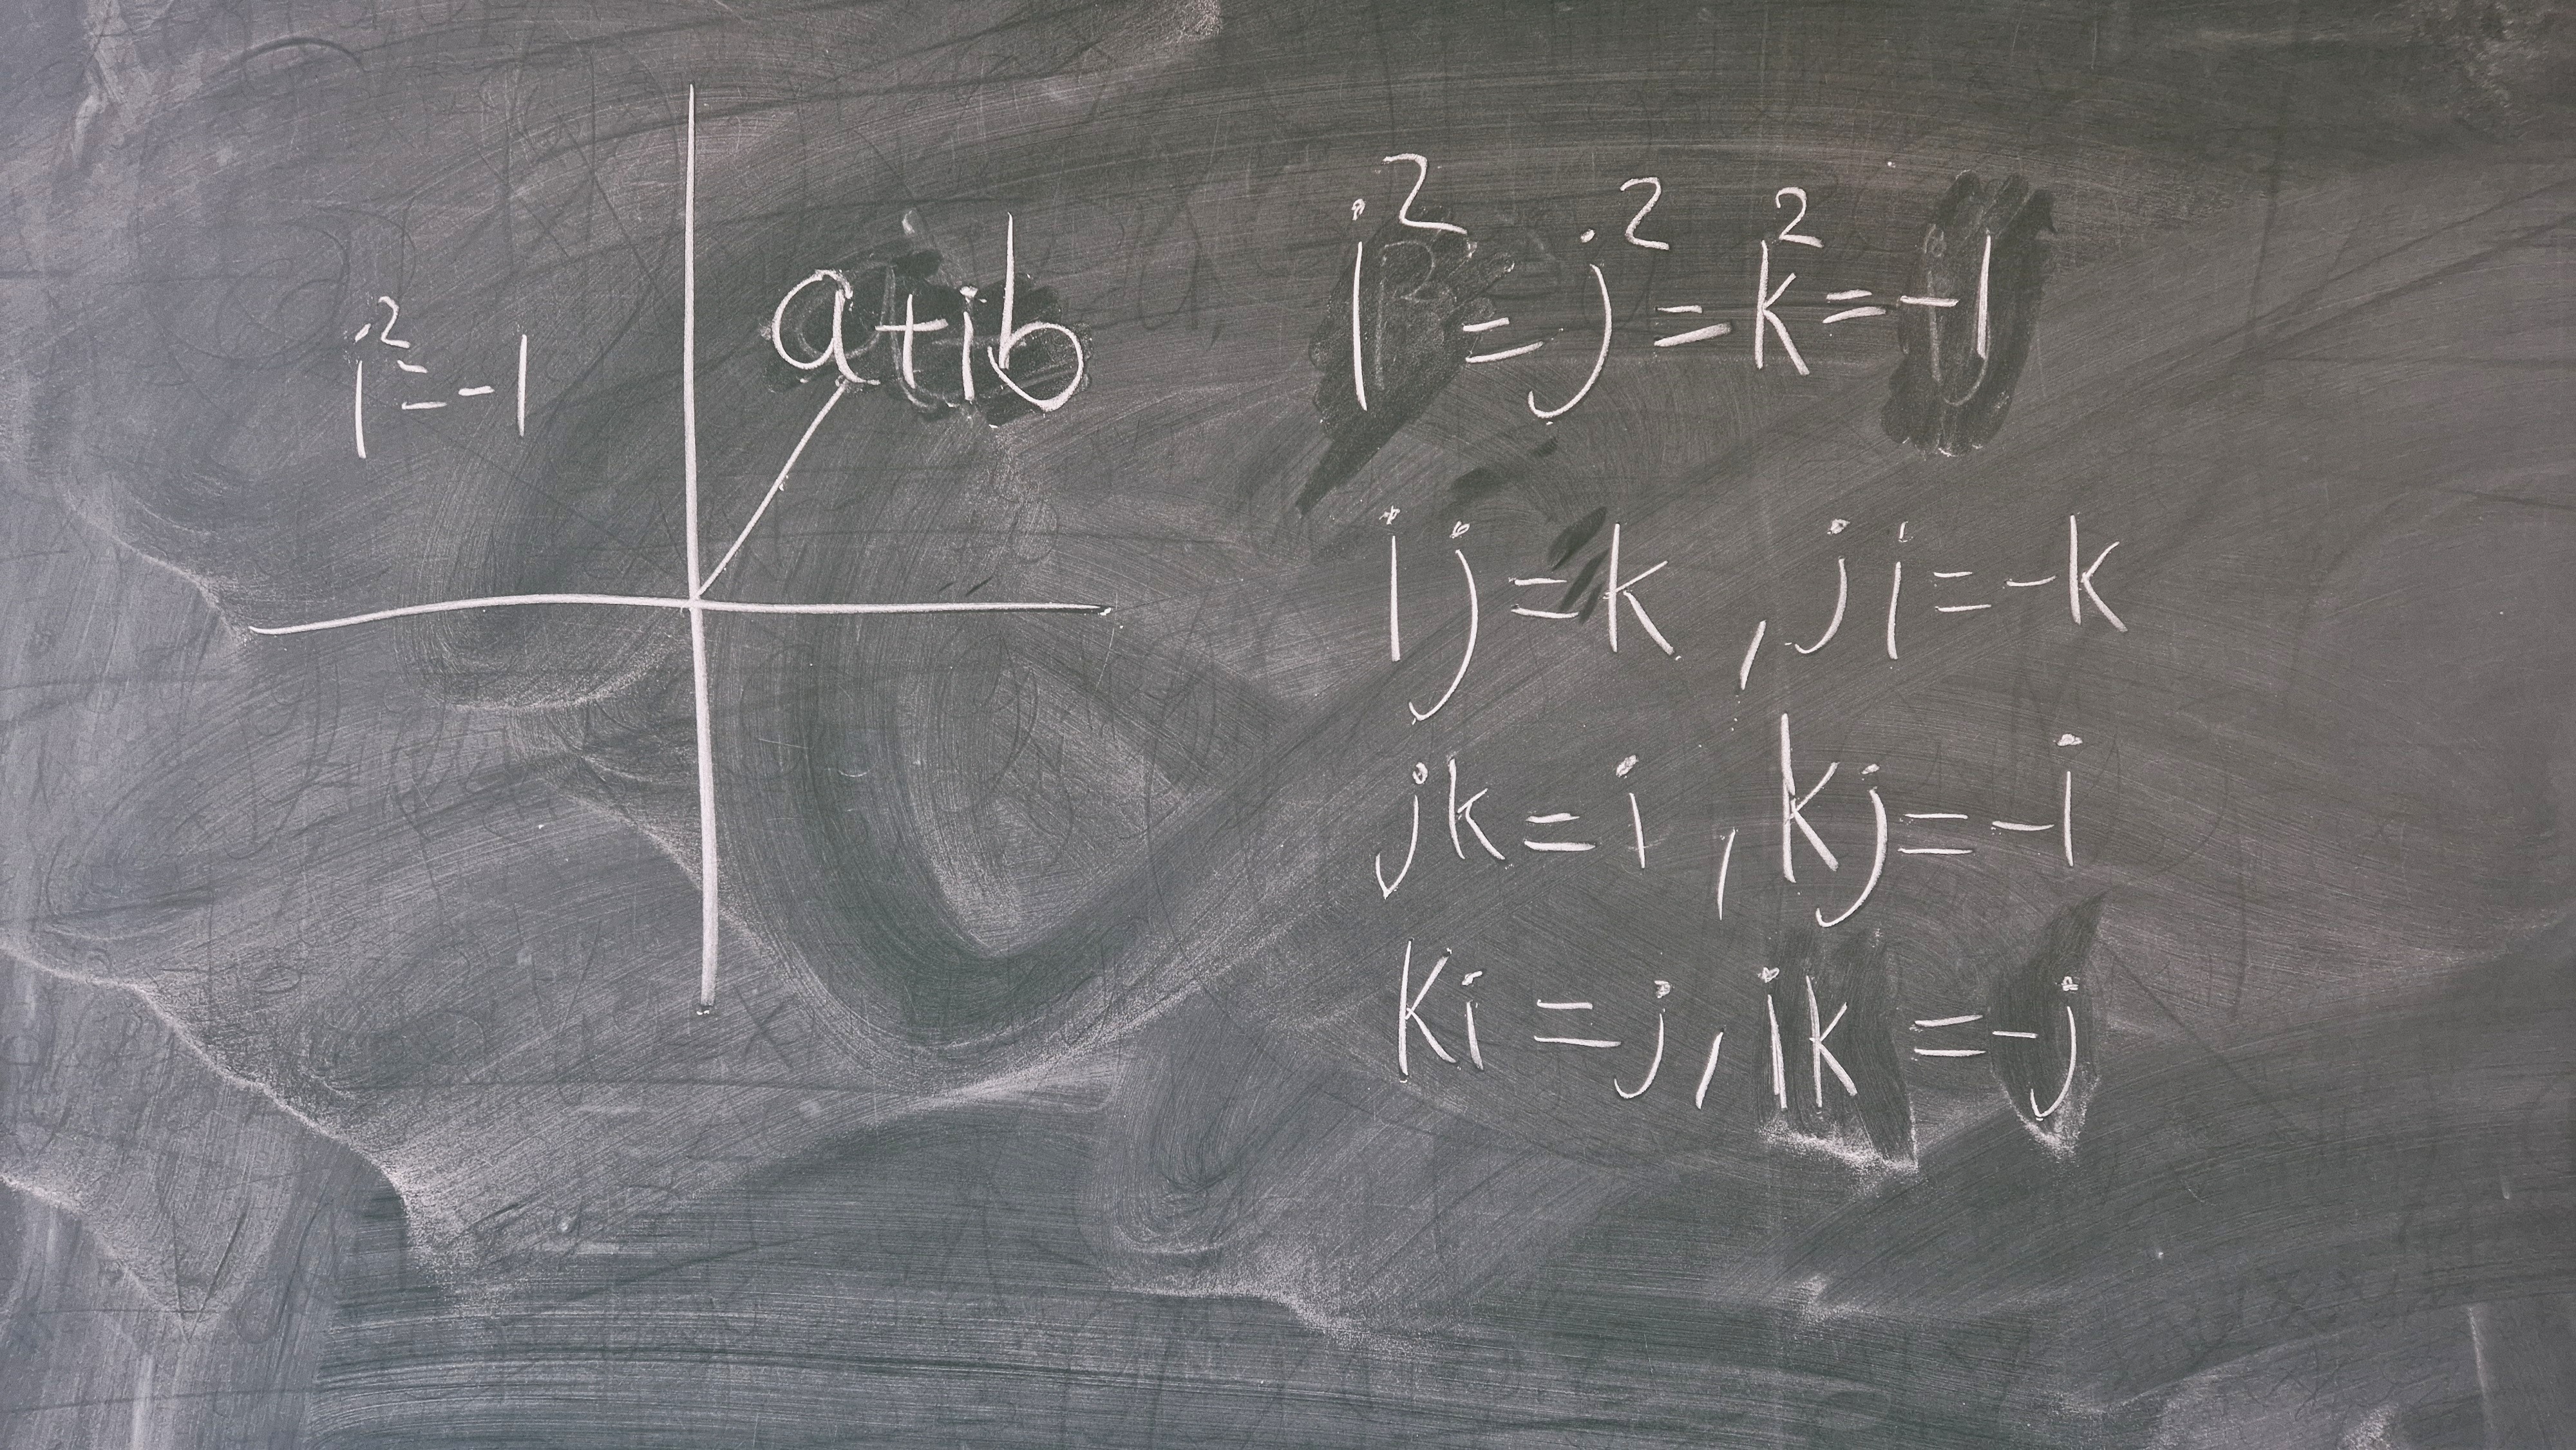 i² = -1
a+ib
i² = j² = k² = -1
ij = k , ji = -k
jk = i , kj = -i
ki = j , ik = -j